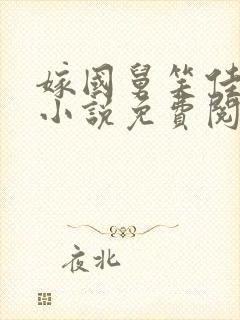 嫁國舅笑佳
小說免費閱
夜北